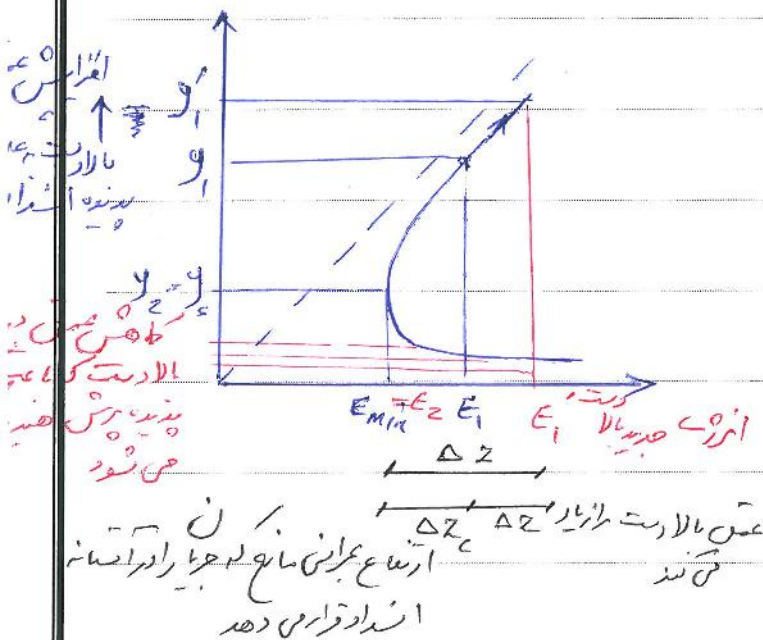 افزایش ع
y₁'
بالادست
y₁
پدیده انسداد
y₂ = y_c
کاهش عمق در
بالادست که باعث
پدیده پرش هید
می شود
E_Min = E₂ E₁ E₁'
انرژی جدید بالادست
ΔZ
ΔZ_c ΔZ
عمق بالادست را زیاد
می کند
ارتفاع بحرانی مانع که جریان را در آستانه
انسداد قرار می دهد